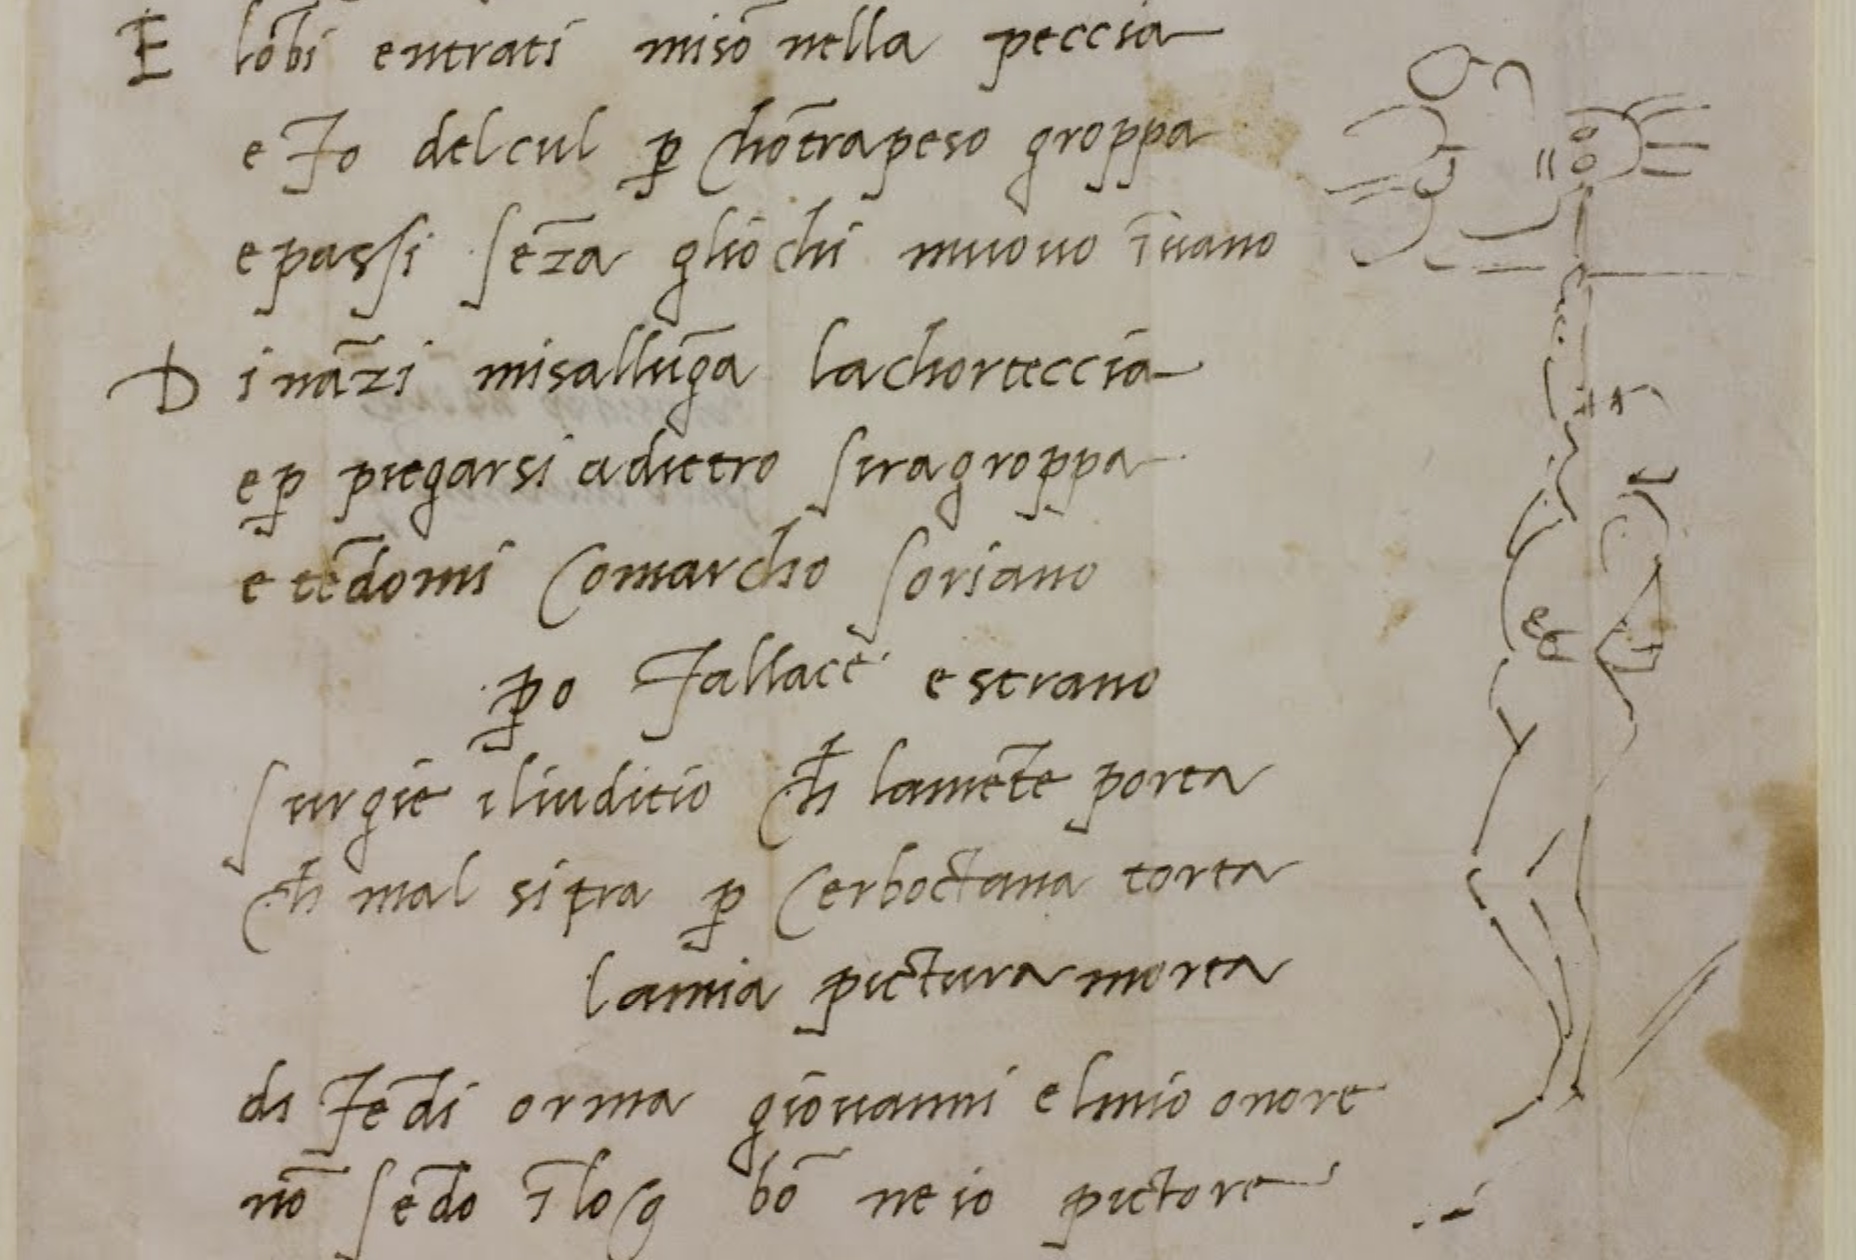 E lōbi entrati misō nella peccia
e Fo delcul p̱ chōtrapeso groppa
e passi sēza gliochi muouo īuano
D inā̄zi misallūga lachorteccia
e p̱ piegarsi adietro siragroppa
e tēdomi Comarcho soriano
p̱o fallace e strano
surgie iliuditio ch̄ lamēte porta
ch̄ mal si tra p̱ Cerboctana torta
lamia pictura morta
di fēdi orma giovanni elmio onore
nō sēdo īloco bō ne io pictore